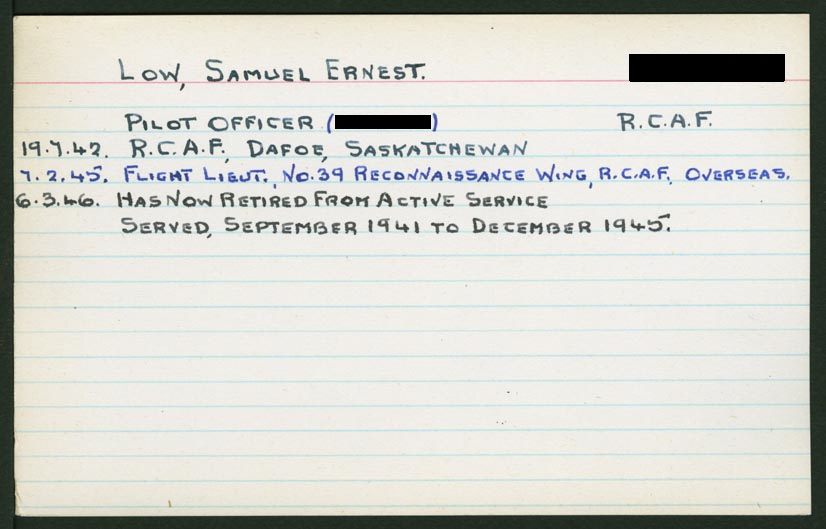 LOW, SAMUEL ERNEST.
PILOT OFFICER ( ) R.C.A.F.
19.7.42. R.C.A.F., DAFOE, SASKATCHEWAN
7.2.45. FLIGHT LIEUT., NO.39 RECONNAISSANCE WING, R.C.A.F. OVERSEAS.
6.3.46. HAS NOW RETIRED FROM ACTIVE SERVICE
SERVED, SEPTEMBER 1941 TO DECEMBER 1945.